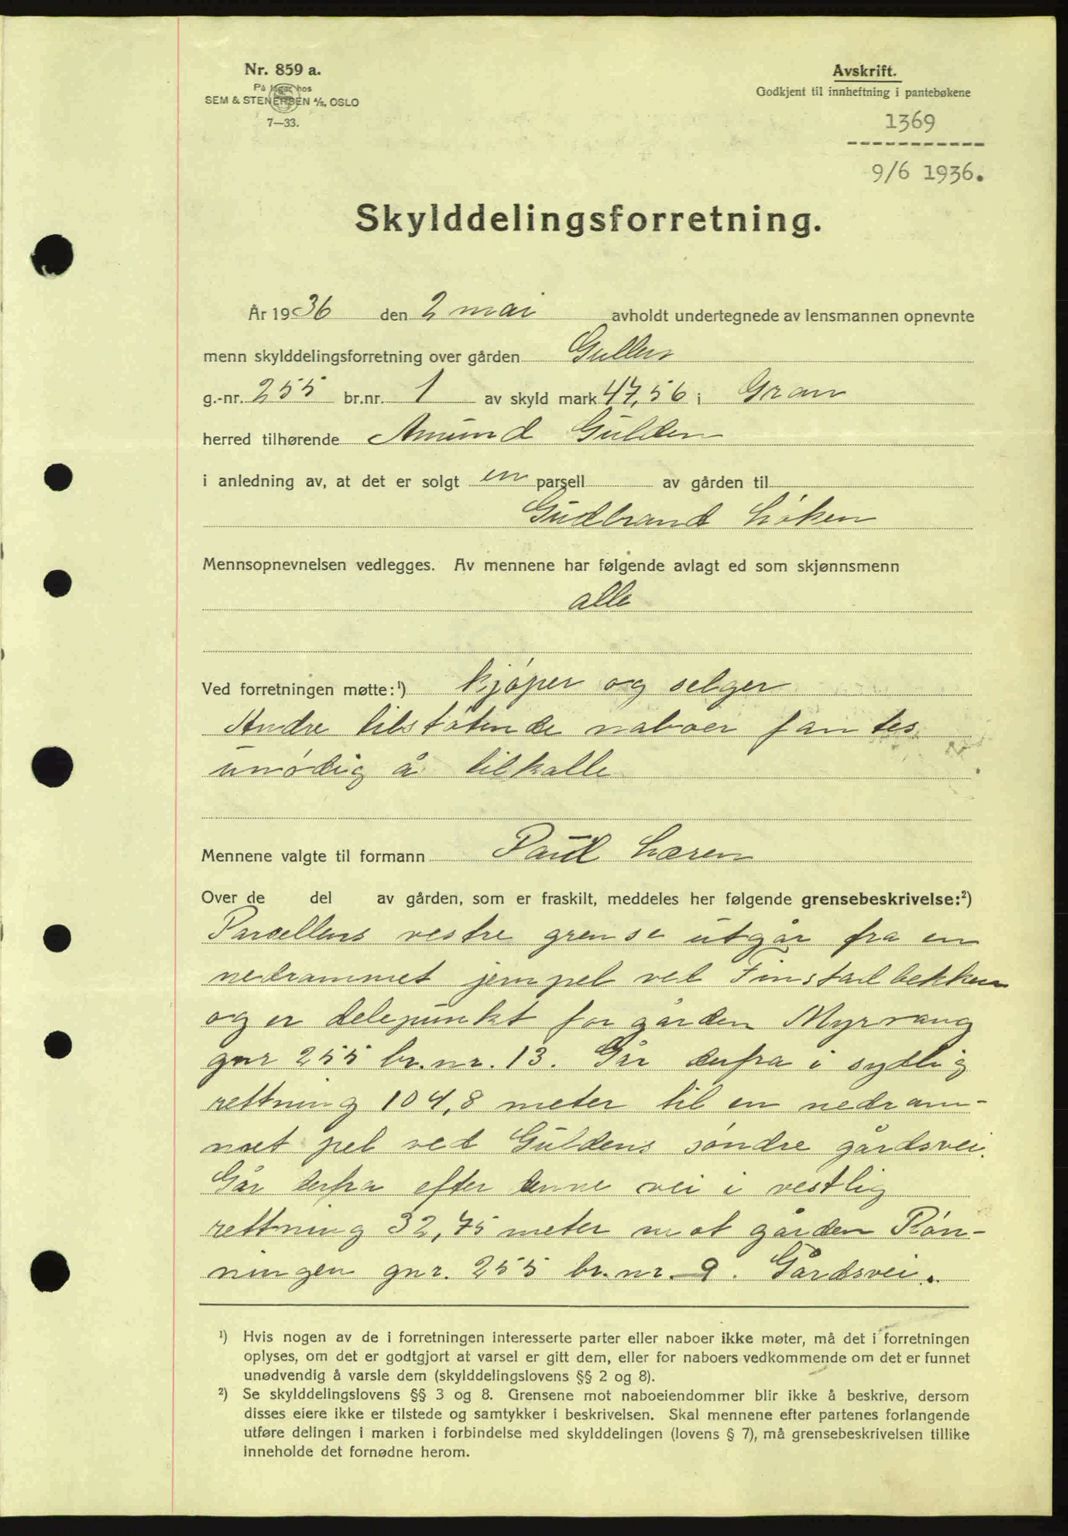 Nr. 859 a.
På lager hos
SEM & STENERSEN A/S, OSLO
7—33.
Avskrift.
Godkjent til innheftning i pantebøkene
1369
9/6 1936.
Skylddelingsforretning.
År 1936 den 2 mai avholdt undertegnede av lensmannen opnevnte
menn skylddelingsforretning over gården Gullen
g.-nr. 255 br.nr. 1 av skyld mark 47,56 i Gran
herred tilhørende Amund Gulden
i anledning av, at det er solgt en parsell av gården til
Gudbrand Løken
Mennsopnevnelsen vedlegges. Av mennene har følgende avlagt ed som skjønnsmenn
alle
Ved forretningen møtte:¹) kjøper og selger
Andre tilstøtende naboer fantes
unødig å tilkalle
Mennene valgte til formann Paul Læren
Over de del av gården, som er fraskilt, meddeles her følgende grensebeskrivelse:²)
Parcellens vestre grense utgår fra en
nedrammet jernpel ved Finstadbekken
og er delepunkt for gården Myrvang
gnr 255 br.nr. 13. Går derfra i sydlig
rettning 104,8 meter til en nedram-
met pel ved Guldens søndre gårdsvei.
Går derfra efter denne vei i vestlig
rettning 32,75 meter mot gården Røn-
ningen gnr. 255 br.nr. 9. Gårdsvei.
¹) Hvis nogen av de i forretningen interesserte parter eller naboer ikke møter, må det i forretningen
oplyses, om det er godtgjort at varsel er gitt dem, eller for naboers vedkommende om det er funnet
unødvendig å varsle dem (skylddelingslovens §§ 2 og 8).
²) Se skylddelingslovens §§ 3 og 8. Grensene mot naboeiendommer blir ikke å beskrive, dersom
disses eiere ikke er tilstede og samtykker i beskrivelsen. Skal mennene efter partenes forlangende
utføre delingen i marken i forbindelse med skylddelingen (lovens § 7), må grensebeskrivelsen tillike
inneholde det fornødne herom.